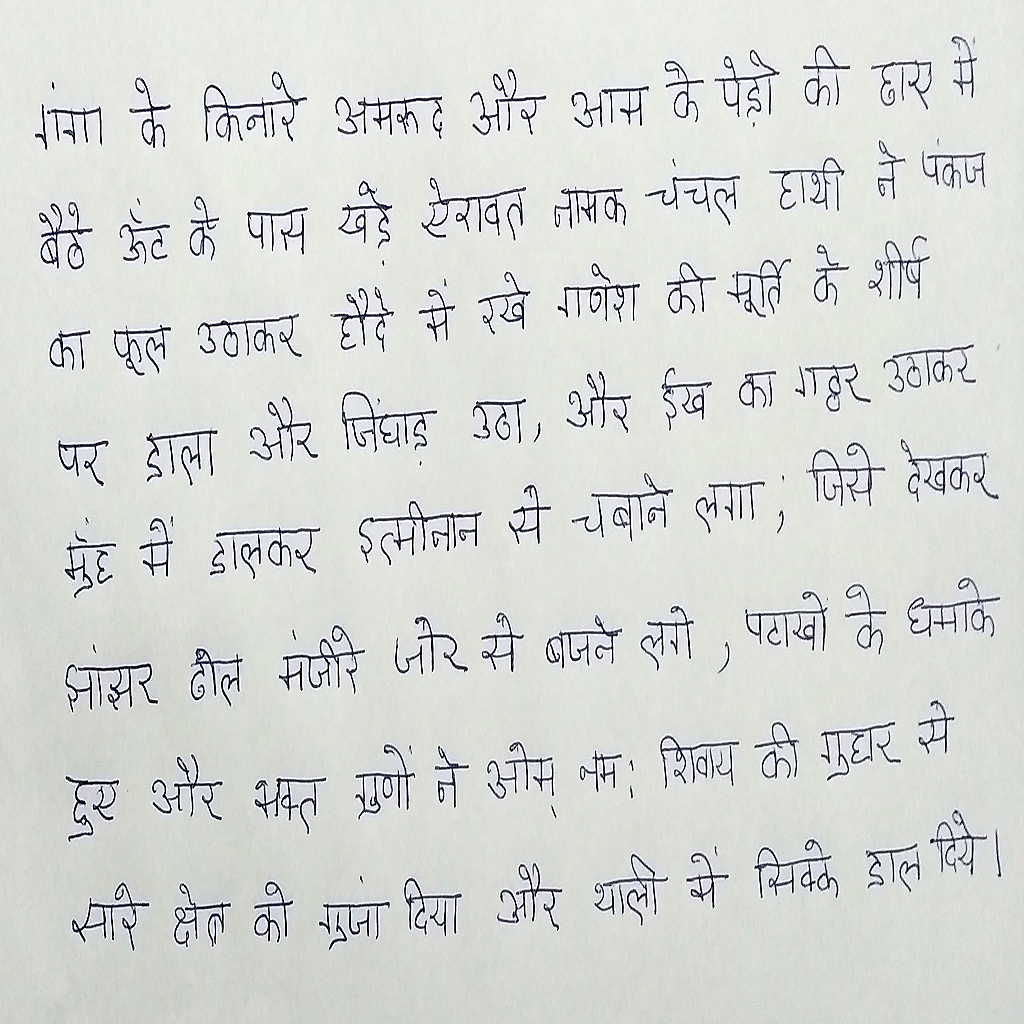 गंगा के किनारे अमरूद और आम के पेड़ो की छाए में
बैठे ऊँट के पास खड़े ऐरावत नामक चंचल हाथी ने पंकज
का फूल उठाकर हौदे में रखे गणेश की मूर्ति के शीर्ष
पर डाला और चिंघाड़ उठा, और ईख का गट्ठर उठाकर
मुँह में डालकर इत्मीनान से चबाने लगा; जिसे देखकर
झांझर ढोल मंजीरे जोर से बजने लगे, पटाखों के धमाके
हुए और भक्त गुणों ने ओम् नम: शिवाय की गुहार से
सारे क्षेत्र को गुजां दिया और थाली में सिक्के डाल दिये।